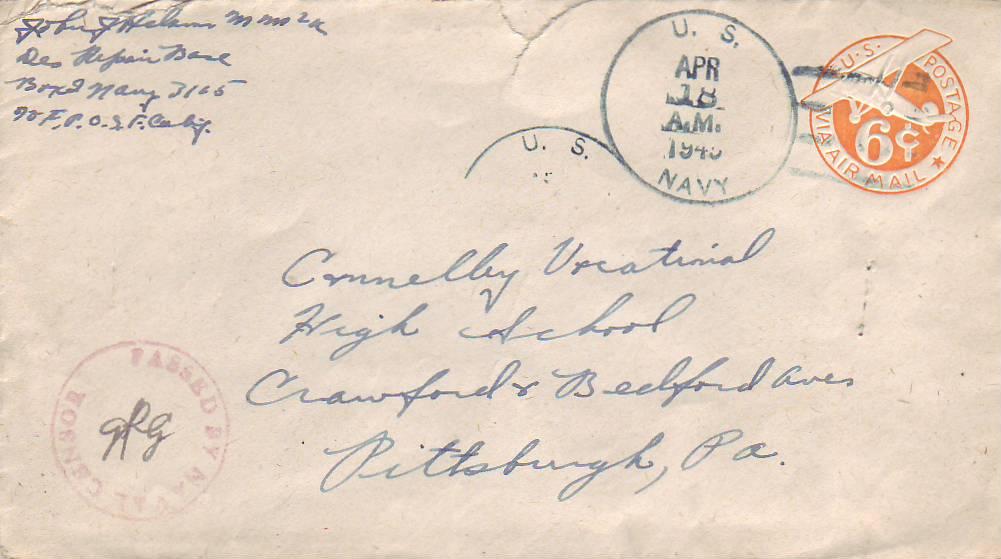 John J Helms MM2/c
Des Repair Base
Box 2 Navy 3165
℅ F.P.O. S.F. Calif.
U. S.
APR
18
A.M.
1945
NAVY
U. S.
U.S. POSTAGE
VIA AIR MAIL
6¢
Connelley Vocational
High School
Crawford & Bedford Aves
Pittsburgh, Pa.
PASSED BY NAVAL CENSOR